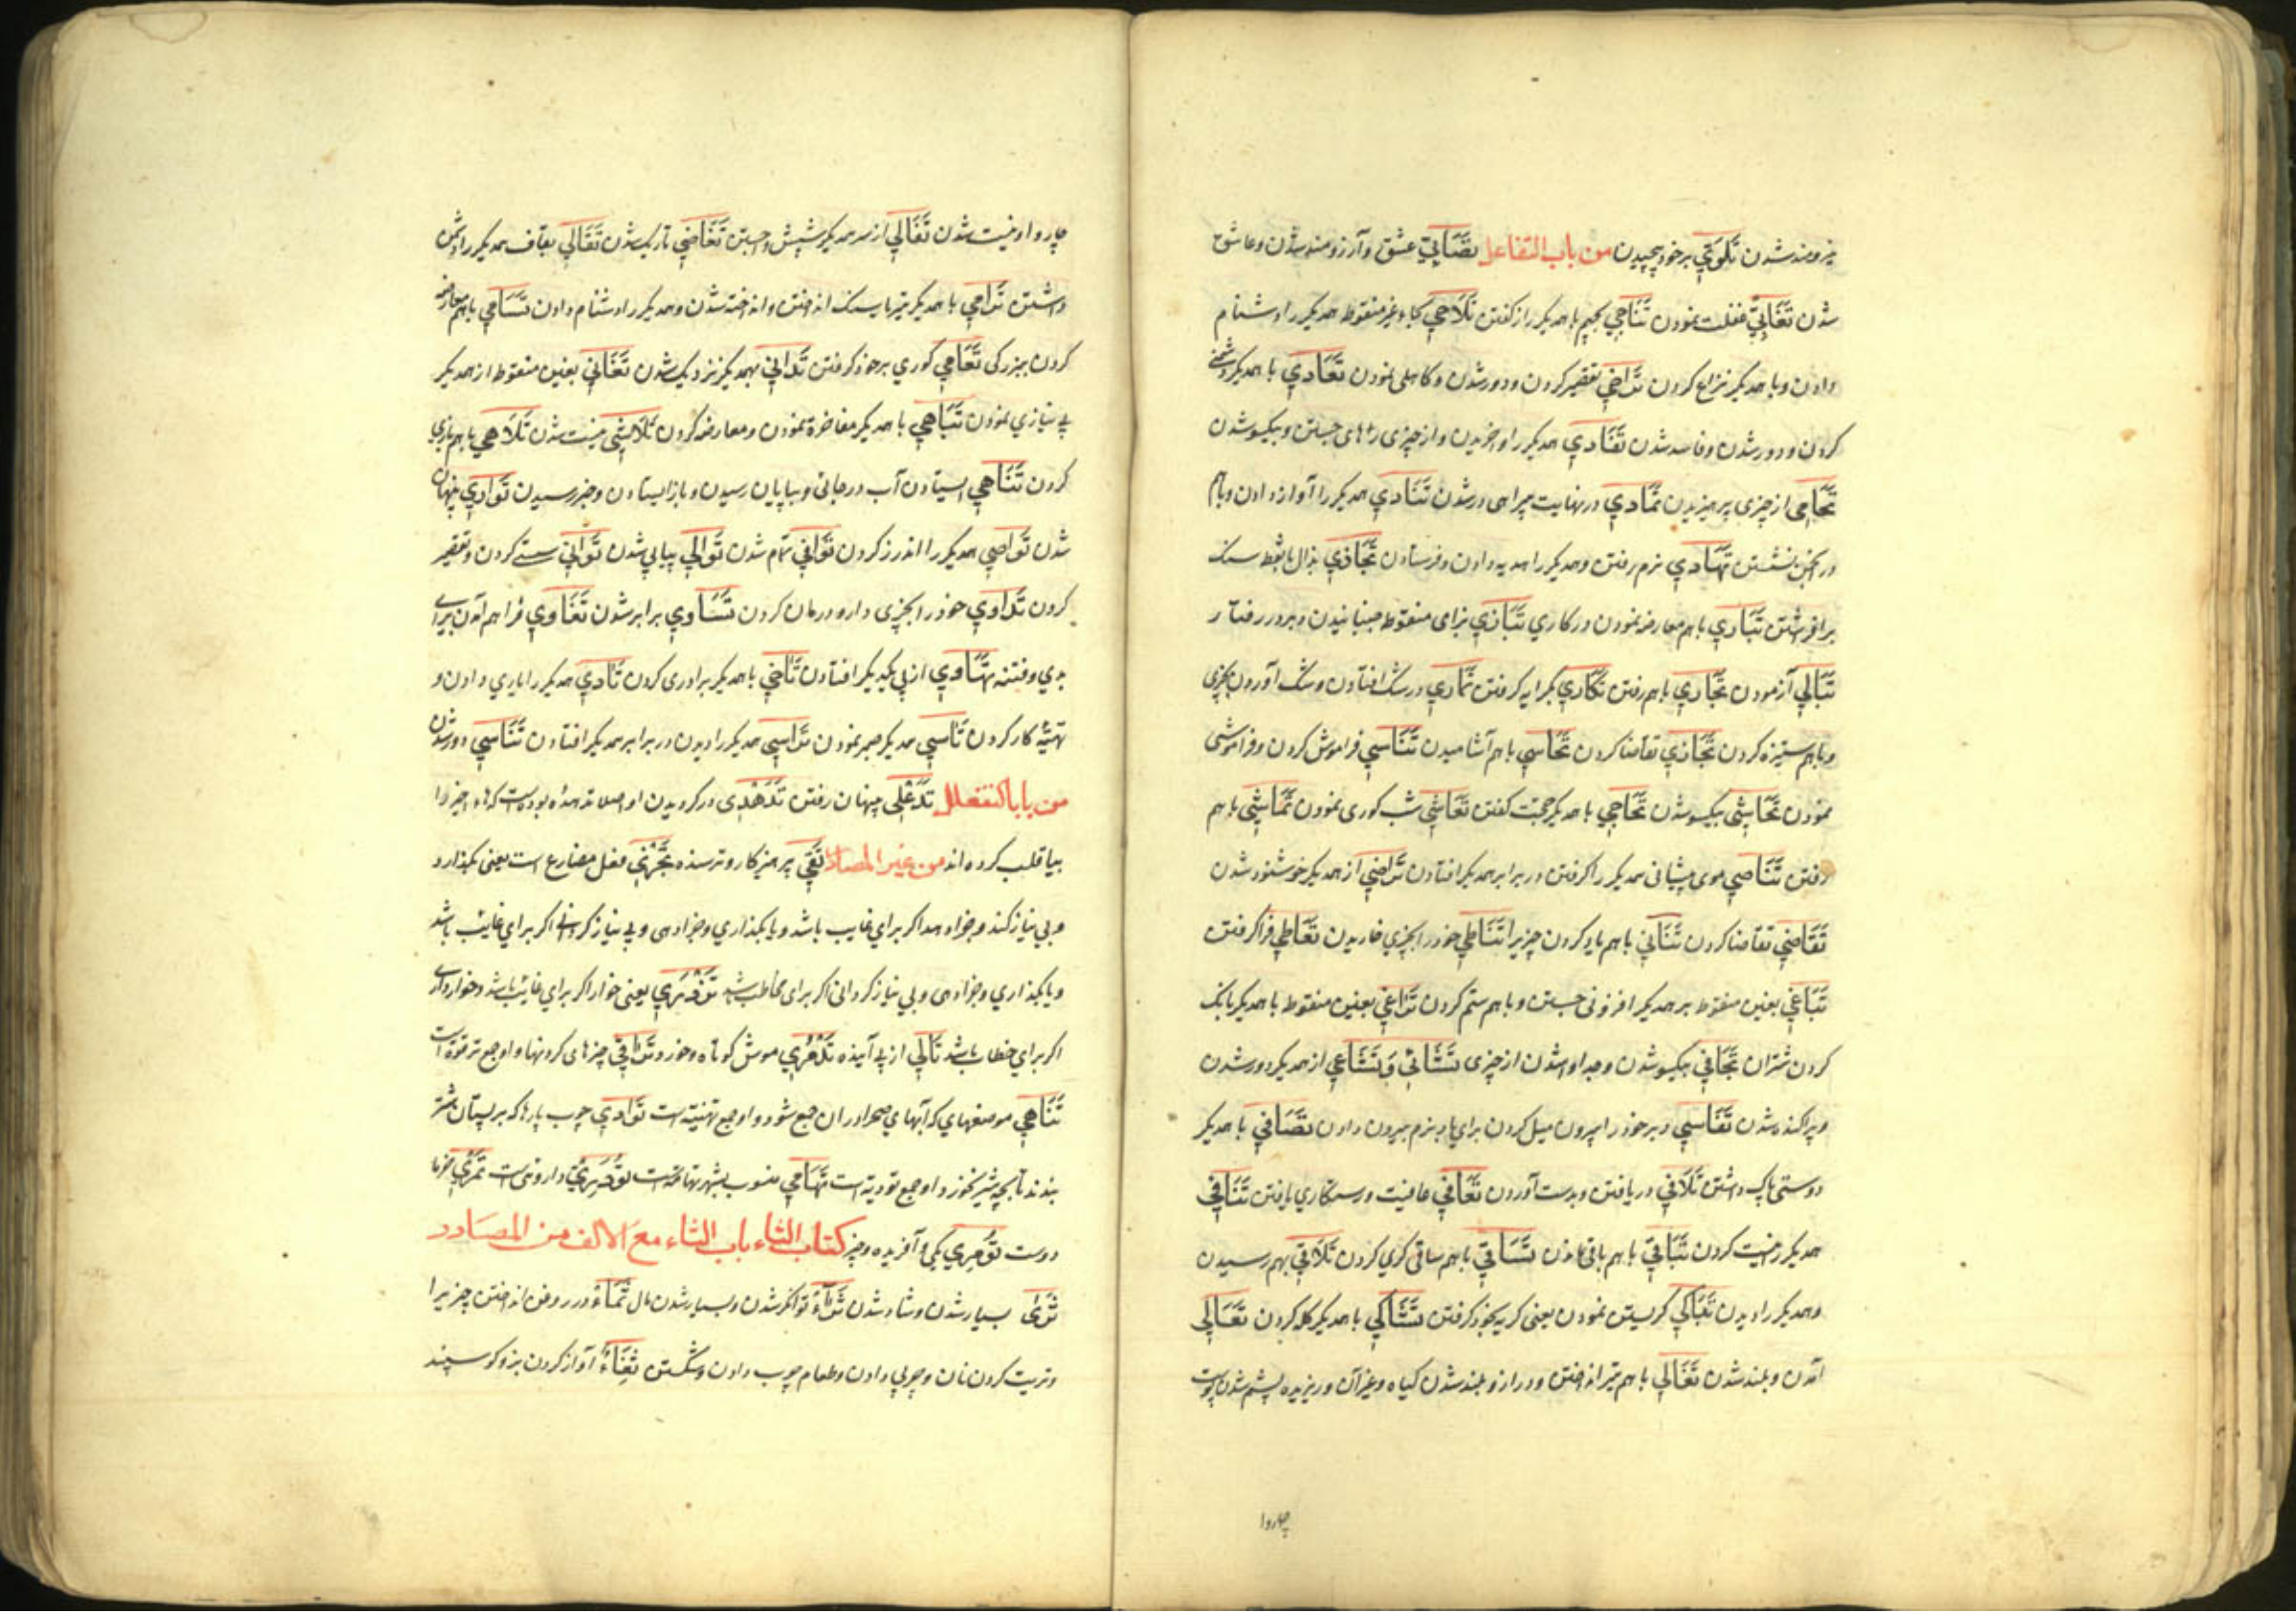 نیرومند شدن تَلَوِّي بر خود پیچیدن من باب التفاعل تَصَابِي عشق و آرزومند شدن و عاشق
شدن تَغَابِي غفلت نمودن تَنَاجِي بجیم با همدیگر راز گفتن تَلَاحِي بحاء غیر منقوط همدیگر را دشنام
دادن و با همدیگر نزاع کردن تَرَاخِي تقصیر کردن و دور شدن و کاهلی نمودن تَعَادِي با همدیگر دشمنی
کردن و دور شدن و فاسد شدن تَفَادِي همدیگر را واخریدن و از چیزی رهای جستن و بیکسو شدن
تَحَامِي از چیزی پرهیزیدن تَمَادِي در نهایت بیراهی در شدن تَنَادِي همدیگر را آواز دادن و باهم
در انجمن نشستن تَهَادِي نرم رفتن و همدیگر را هدیه دادن و فرستادن تَجَاذِي بذال با نقط سنک
برافرشتن تَبَارِي با هم معارضه نمودن در کاری تَبَازِي بزای منقوط جنبانیدن در رفتار
تَبَالِي آزمودن تَجَارِي باهم رفتن تَكَارِي بکرایه کرفتن تَمَارِي در شک افتادن و شک آوردن بچیزی
و باهم ستیزه کردن تَجَازِي تقاضا کردن تَحَاسِي باهم آشامیدن تَنَاسِي فراموش کردن و فراموشی
نمودن تَحَاشِي بیکسو شدن تَحَاجِي با همدیگر حجت کفتن تَعَاشِي شب کوری نمودن تَمَاشِي باهم
رفتن تَنَاصِي موی پیشانی همدیگر را کرفتن و در برابر همدیگر افتادن تَرَاضِي از همدیگر خوشنود شدن
تَقَاضِي تقاضا کردن تَثَانِي باهم یاد کردن چیزیرا تَنَاطِي خود را بچیزی خاریدن تَعَاطِي فرا کرفتن
تَبَاغِي بغین منقوط بر همدیگر افزونی جستن و باهم ستم کردن تَرَاغِي بغین منقوط با همدیگر بانک
کردن شتران تَجَافِي بیکسو شدن و جدا و شدن از چیزی تَشَائِي وَ تَشَاعِي از همدیگر دور شدن
و پراکنده شدن تَفَاسِي دبر خود را بیرون میل کردن برای باد نرم بیرون دادن تَصَافِي با همدیگر
دوستی پاک داشتن تَلَافِي دریافتن و بدست آوردن تَعَافِي عافیت و رستکاری یافتن تَنَافِي
همدیگر را نیست کردن تَبَاقِي باهم باقی ماندن تَسَاقِي باهم ساقی کری کردن تَلَاقِي بهم رسیدن
و همدیگر را دیدن تَبَاكِي کریستن نمودن یعنی کریه بخود کرفتن تَشَاكِي با همدیگر کله کردن تَعَالِي
آمدن و بلند شدن تَغَالِي باهم تیر انداختن و دراز و بلند شدن کیاه و غیر آن و ریزیده پشم شدن پوست
چاروا
چاروا و نیست شدن تَفَالِي از سر همدیگر شپش جستن تَغَاضِي تاریک شدن تَقَالِي بقاف همدیگر را دشمن
داشتن تَرَامِي با همدیگر تیر یا سنک انداختن و انداخته شدن و همدیگر را دشنام دادن تَسَامِي باهم معارضه
کردن ببزرکی تَعَامِي کوری بر خود کرفتن تَدَانِي بهمدیگر نزدیک شدن تَغَانِي بغین منقوط از همدیگر
بی نیازی نمودن تَبَاهِي با همدیگر مفاخرة نمودن و معارضه کردن تَلَاشِي نیست شدن تَلَاهِي باهم بازی
کردن تَنَاهِي ایستادن آب در جائی و بپایان رسیدن و باز ایستادن و خبر رسیدن تَوَارِي پنهان
شدن تَوَاصِي همدیگر را اندرز کردن تَوَافِي تمام شدن تَوَالِي پیاپی شدن تَوَانِي سستی کردن و تقصیر
کردن تَدَاوِي خود را بچیزی دارو درمان کردن تَسَاوِي برابر شدن تَغَاوِي فراهم آمدن برای
بدی و فتنه تَهَاوِي از پی یکدیگر افتادن تَآخِي با همدیگر برادری کردن تَآدِي همدیگر را یاری دادن و
تهیّه کار کردن تَآسِي همدیگر صبر نمودن تَرَاسِي همدیگر را دیدن و در برابر همدیگر افتادن تَنَاسِي دور شدن
من باب التفعلل تَدَغْلِي پنهان رفتن تَدَهْدِي در کردیدن او اصلا تدهده بوده است که هاء اخیر را
بیا قلب کرده اند من غیر المصادر تَقِي پرهیزکار و ترسنده تَجْزِي فعل مضارع است یعنی بکذارد
و بی نیاز کند و جزا دهد اکر برای غایب باشد و یا بکذاری و جزا دهی و بی نیاز کردانی اکر برای غایب باشد
و یا بکذاری و جزا دهی و بی نیاز کردانی اکر برای مخاطب باشد تَزْدَرِي یعنی خوار اکر برای غایب باشد و خوار داری
اکر برای خطاب باشد تَالِي از پی آینده موش کوتاه و خورد تَرَاقِي چیزهای کردنها و او جمع ترقوة است
تَنَاهِي موضعهای که آبهای صحرا در آن جمع شود و او جمع تنهیة است تَوَادِي چوب پارها که بر پستان شتر
بندند تا بچه شیر نخورد و او جمع تودیة است تِهَامِي منسوب بشهر تهامة است داروئی است خرما
دوست تُؤمُرِي یکی آفریده و چیز کتاب الثاء باب الثاء مع الالف من المصادر
ثَرَى بسیار شدن و شاد شدن ثَرَاءً توانکر شدن و بسیار شدن مال ثَمَاءً در روغن انداختن چیزیرا
و تریت کردن نان و چربی دادن و طعام چرب دادن و شکستن ثُغَاءً آواز کردن بز و کوسپند